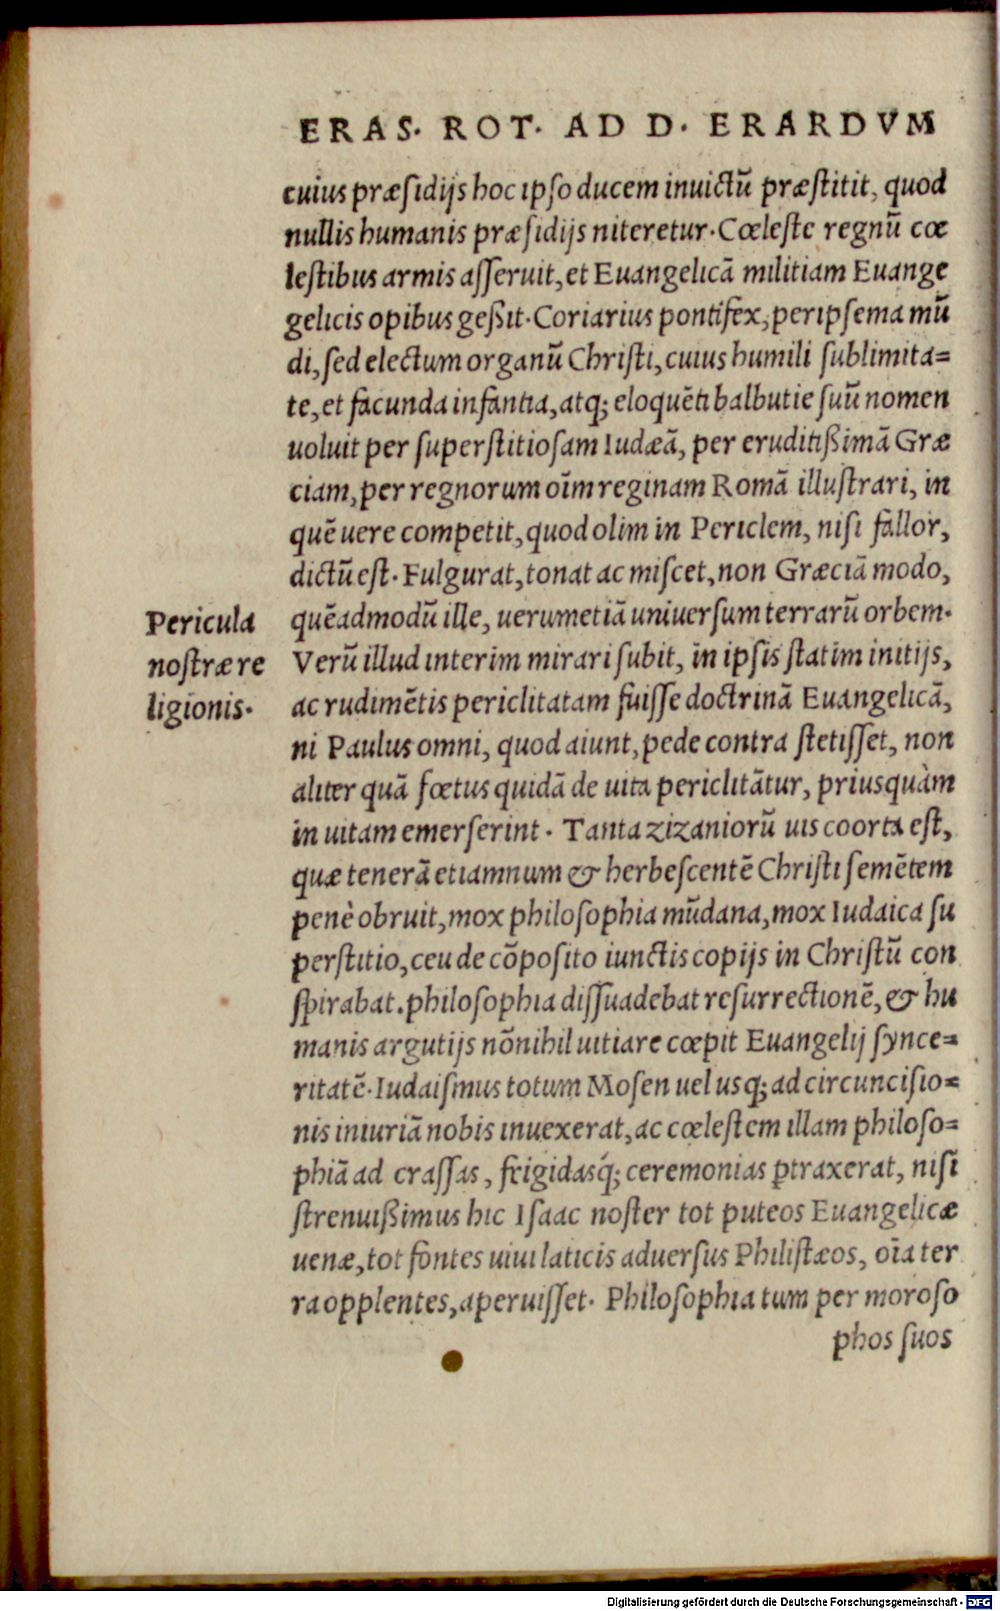 ERAS· ROT· AD D· ERARDVM
cuius præſidijs hoc ipſo ducem inuictũ præſtitit, quod
nullis humanis præſidijs niteretur· Cœleſte regnũ cœ
leſtibus armis aſſeruit, et Euangelicã militiam Euange
gelicis opibus geßit· Coriarius pontifex, peripſema mũ
di, ſed electum organũ Chriſti, cuius humili ſublimita=
te, et facunda infantia, atq; eloquẽti balbutie ſuũ nomen
uoluit per ſuperſtitioſam Iudæã, per eruditißimã Græ
ciam, per regnorum oĩm reginam Romã illuſtrari, in
quẽ uere competit, quod olim in Periclem, niſi fallor,
dictũ eſt· Fulgurat, tonat ac miſcet, non Græciã modo,
Pericula
noſtræ re
ligionis·
quẽadmodũ ille, uerumetiã uniuerſum terrarũ orbem·
Verũ illud interim mirari ſubit, in ipſis ſtatim initijs,
ac rudimẽtis periclitatam fuiſſe doctrinã Euangelicã,
ni Paulus omni, quod aiunt, pede contra ſtetiſſet, non
aliter quã fœtus quidã de uita periclitãtur, priusquàm
in uitam emerſerint· Tanta zizaniorũ uis coorta eſt,
quæ tenerã etiamnum & herbeſcentẽ Chriſti ſemẽtem
penè obruit, mox philoſophia mũdana, mox Iudaica ſu
perſtitio, ceu de cõpoſito iunctis copijs in Chriſtũ con
ſpirabat. philoſophia diſſuadebat reſurrectionẽ, & hu
manis argutijs nõnihil uitiare cœpit Euangelij ſynce=
ritatẽ· Iudaiſmus totum Moſen uel usq; ad circunciſio=
nis iniuriã nobis inuexerat, ac cœleſtem illam philoſo=
phiã ad craſſas, frigidasq́; ceremonias ꝑtraxerat, niſi
ſtrenuißimus hic Iſaac noſter tot puteos Euangelicæ
uenæ, tot fontes uiui laticis aduerſus Philiſtæos, oĩa ter
ra opplentes, aperuiſſet· Philoſophia tum per moroſo
phos ſuos
Digitalisierung gefördert durch die Deutsche Forschungsgemeinschaft - DFG